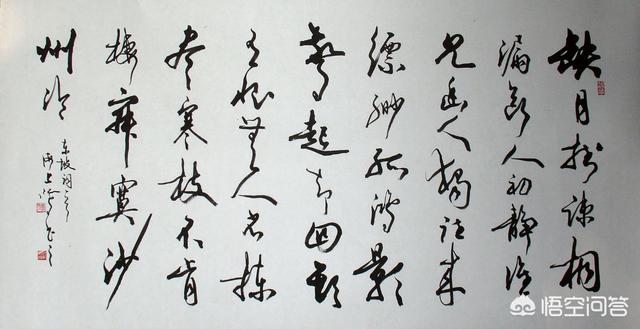 缺月挂疎桐
漏断人初静谁
见幽人獨往来
缥缈孤鸿影
惊起却回头
有恨无人省拣
尽寒枝不肯
栖寂寞沙
州冷
东坡词
海上
悟空问答